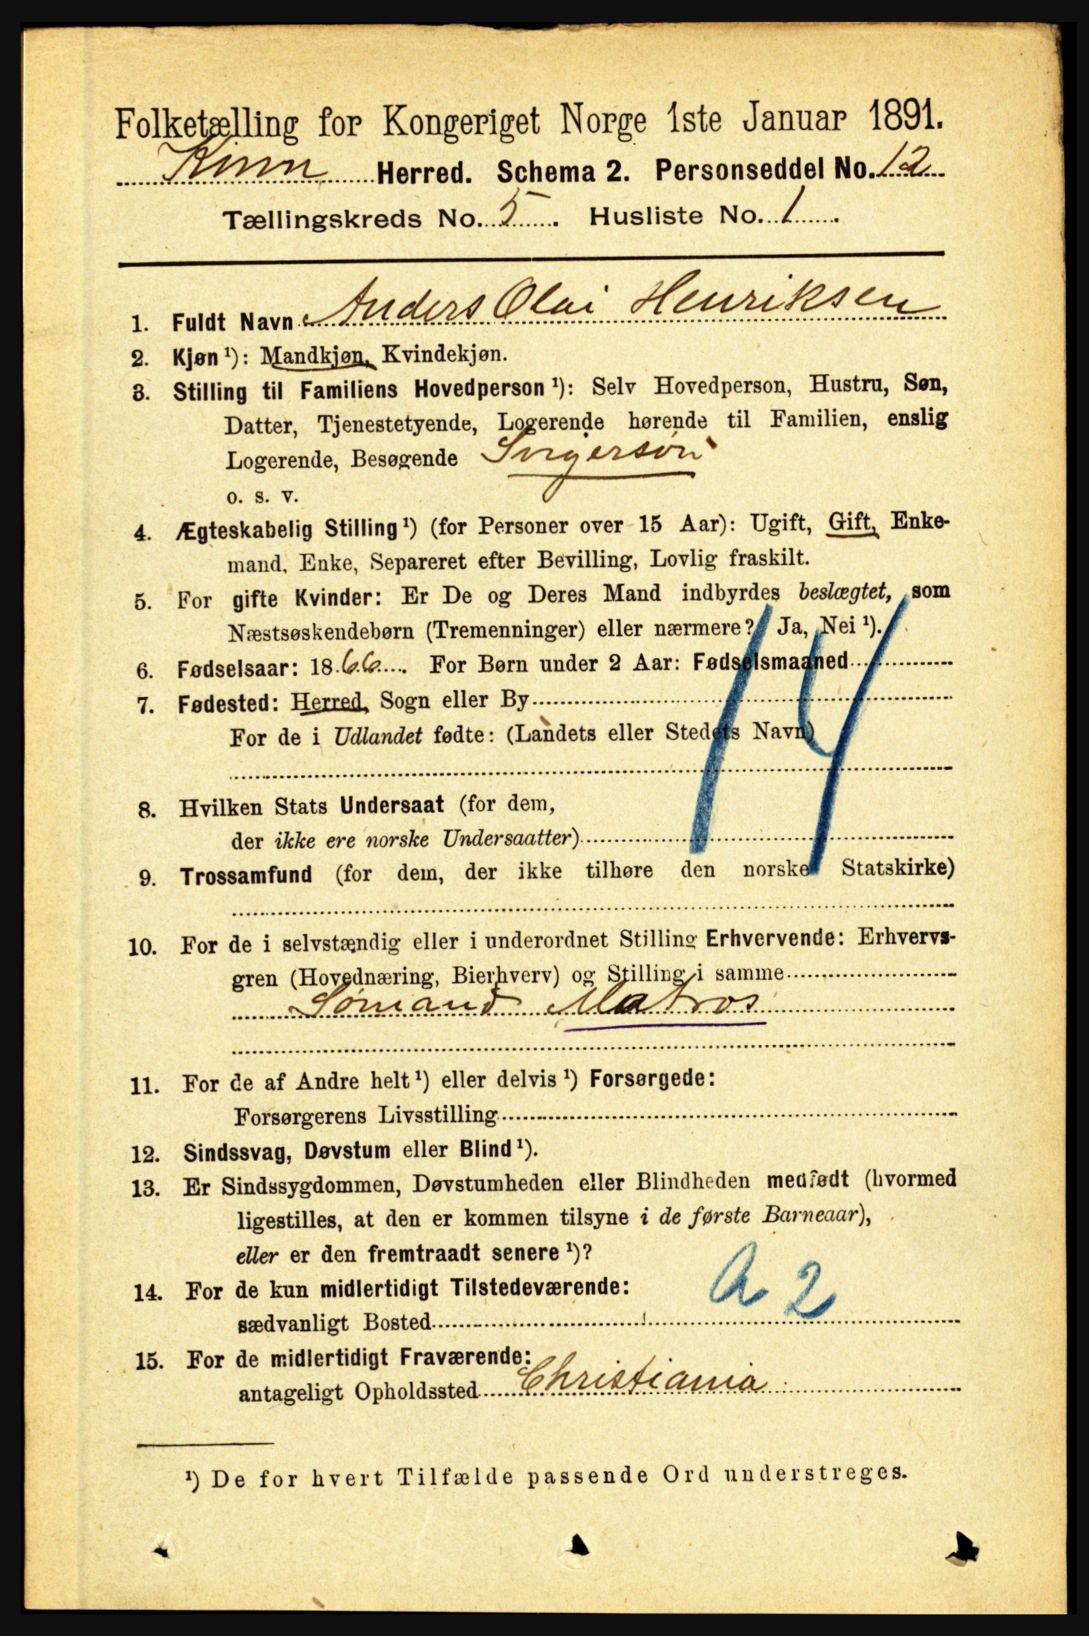 Folketælling for Kongeriget Norge 1ste Januar 1891.
Kinn Herred. Schema 2. Personseddel No. 12
Tællingskreds No. 5. Husliste No. 1.
1. Fuldt Navn Anders Olai Henriksen
2. Kjøn ¹): Mandkjøn, Kvindekjøn.
3. Stilling til Familiens Hovedperson ¹): Selv Hovedperson, Hustru, Søn,
Datter, Tjenestetyende, Logerende hørende til Familien, enslig
Logerende, Besøgende Svigersøn
o. s. v.
4. Ægteskabelig Stilling ¹) (for Personer over 15 Aar): Ugift, Gift, Enke-
mand, Enke, Separeret efter Bevilling, Lovlig fraskilt.
5. For gifte Kvinder: Er De og Deres Mand indbyrdes beslægtet, som
Næstsøskendebørn (Tremenninger) eller nærmere? Ja, Nei ¹).
6. Fødselsaar: 1866. For Børn under 2 Aar: Fødselsmaaned
7. Fødested: Herred, Sogn eller By
For de i Udlandet fødte: (Landets eller Stedets Navn)
14
8. Hvilken Stats Undersaat (for dem,
der ikke ere norske Undersaatter)
9. Trossamfund (for dem, der ikke tilhøre den norske Statskirke)
10. For de i selvstændig eller i underordnet Stilling Erhvervende: Erhvervs-
gren (Hovednæring, Bierhverv) og Stilling i samme
Sømand Matros
11. For de af Andre helt ¹) eller delvis ¹) Forsørgede:
Forsørgerens Livsstilling
12. Sindssvag, Døvstum eller Blind ¹).
13. Er Sindssygdommen, Døvstumheden eller Blindheden medfødt (hvormed
ligestilles, at den er kommen tilsyne i de første Barneaar),
eller er den fremtraadt senere ¹)?
A 2
14. For de kun midlertidigt Tilstedeværende:
sædvanligt Bosted
15. For de midlertidigt Fraværende:
antageligt Opholdssted Christiania
¹) De for hvert Tilfælde passende Ord understreges.